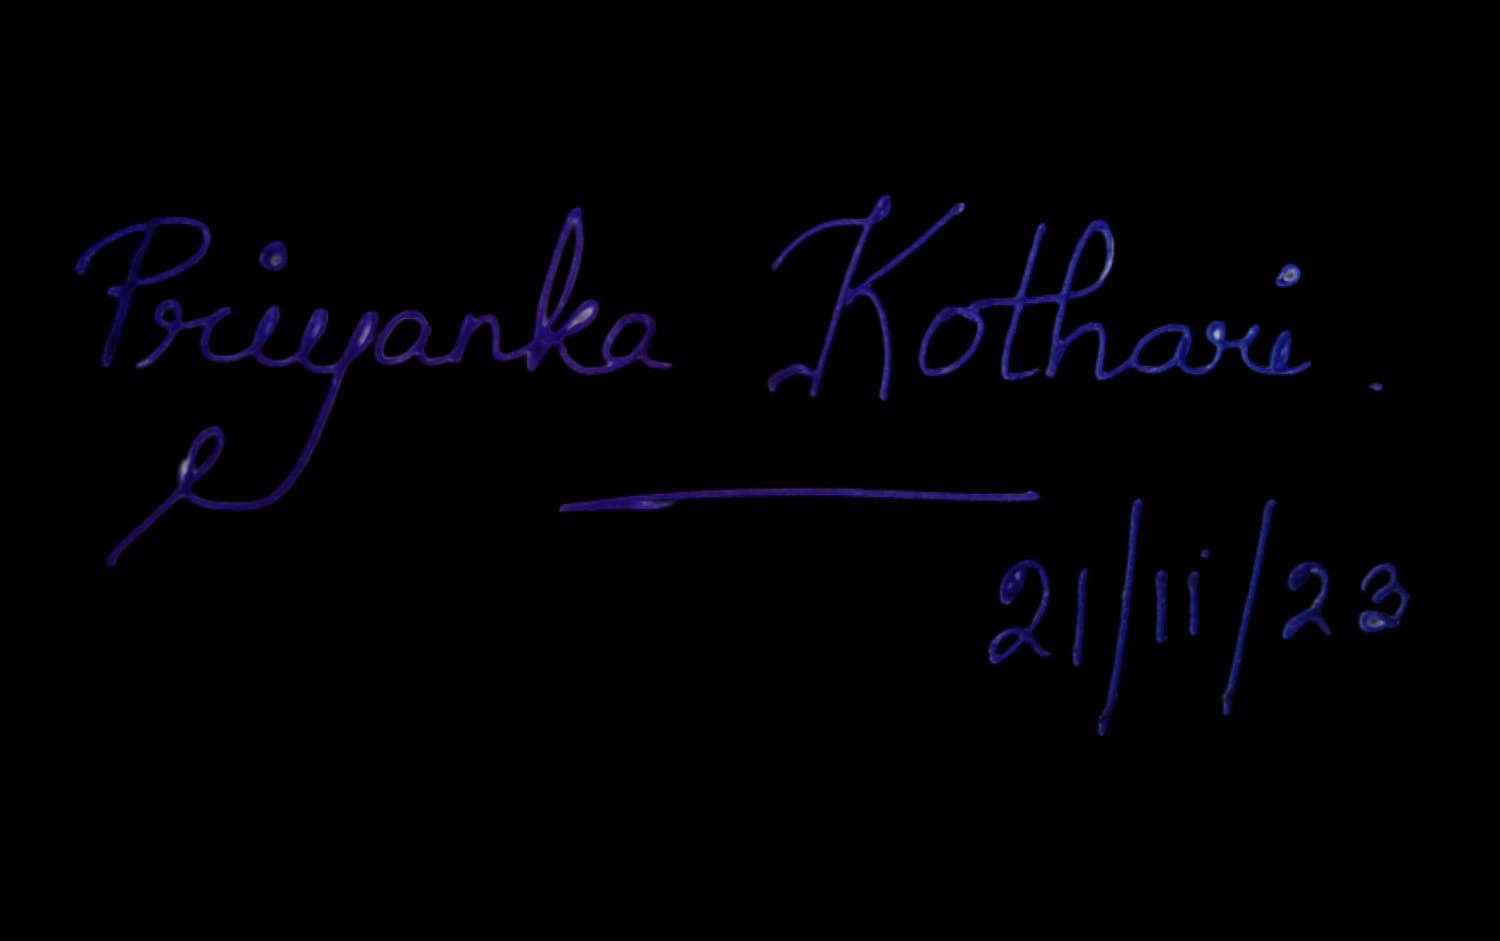 Priyanka Kothari.
21/11/23